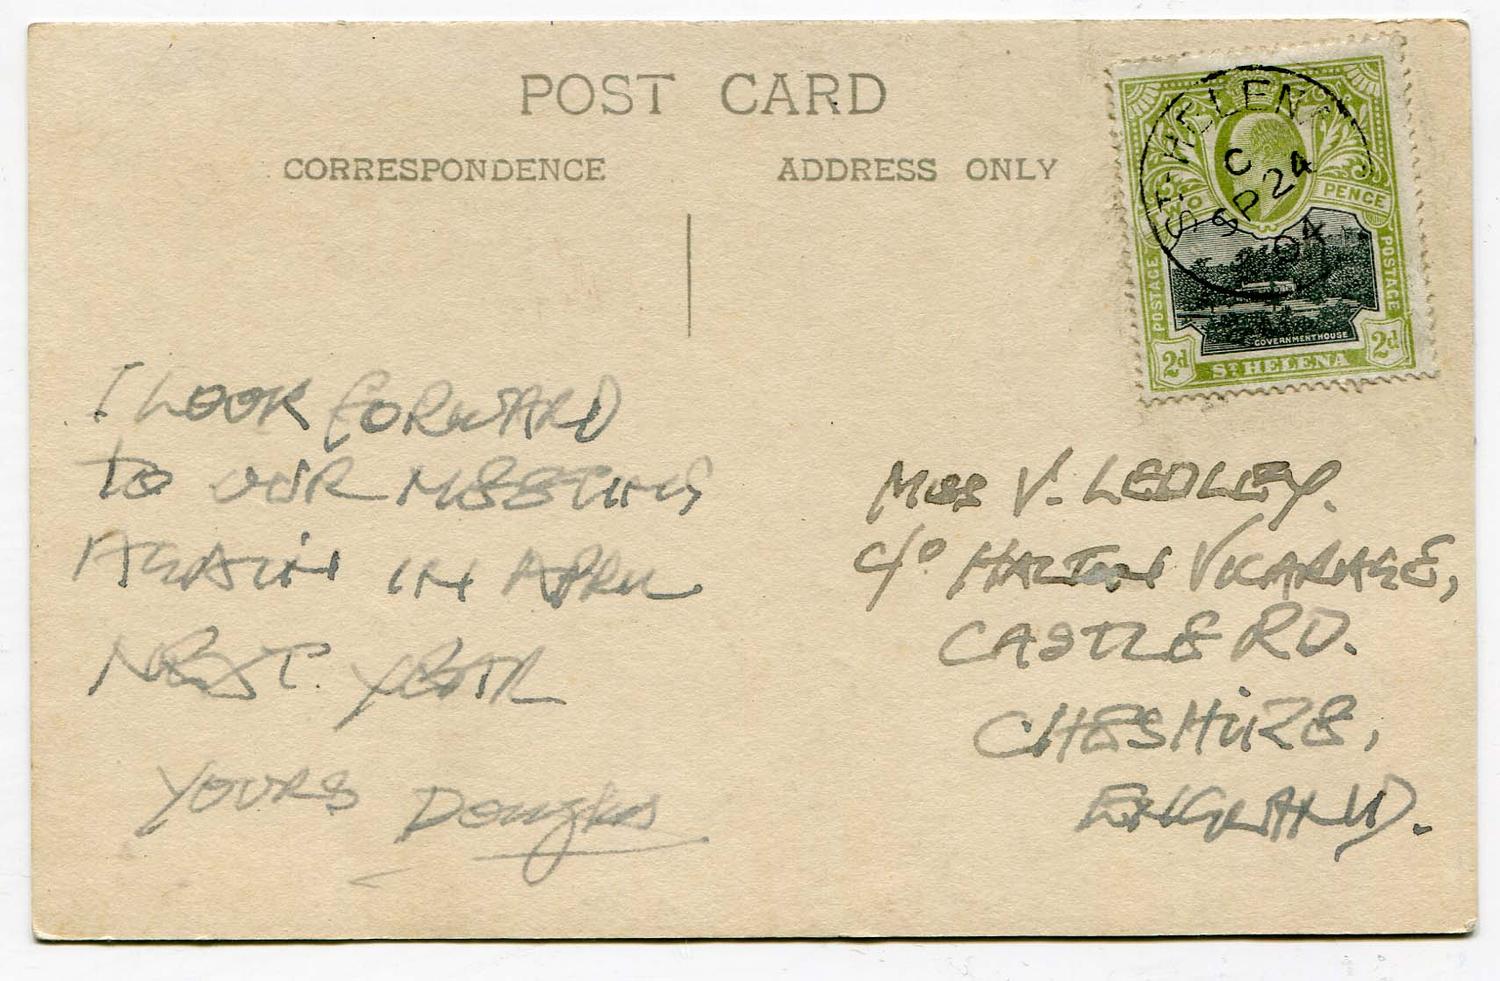 POST CARD
CORRESPONDENCE
ADDRESS ONLY
ST. HELENA
C
SP 24
04
TWO PENCE
POSTAGE
POSTAGE
GOVERNMENT HOUSE
2d
2d
ST HELENA
I LOOK FORWARD
TO OUR MEETING
AGAIN IN APRIL
NEXT. YEAR
YOURS Douglas
Miss V. LEDLEY.
c/o HALTON VICARAGE,
CASTLE RD.
CHESHIRE,
ENGLAND.